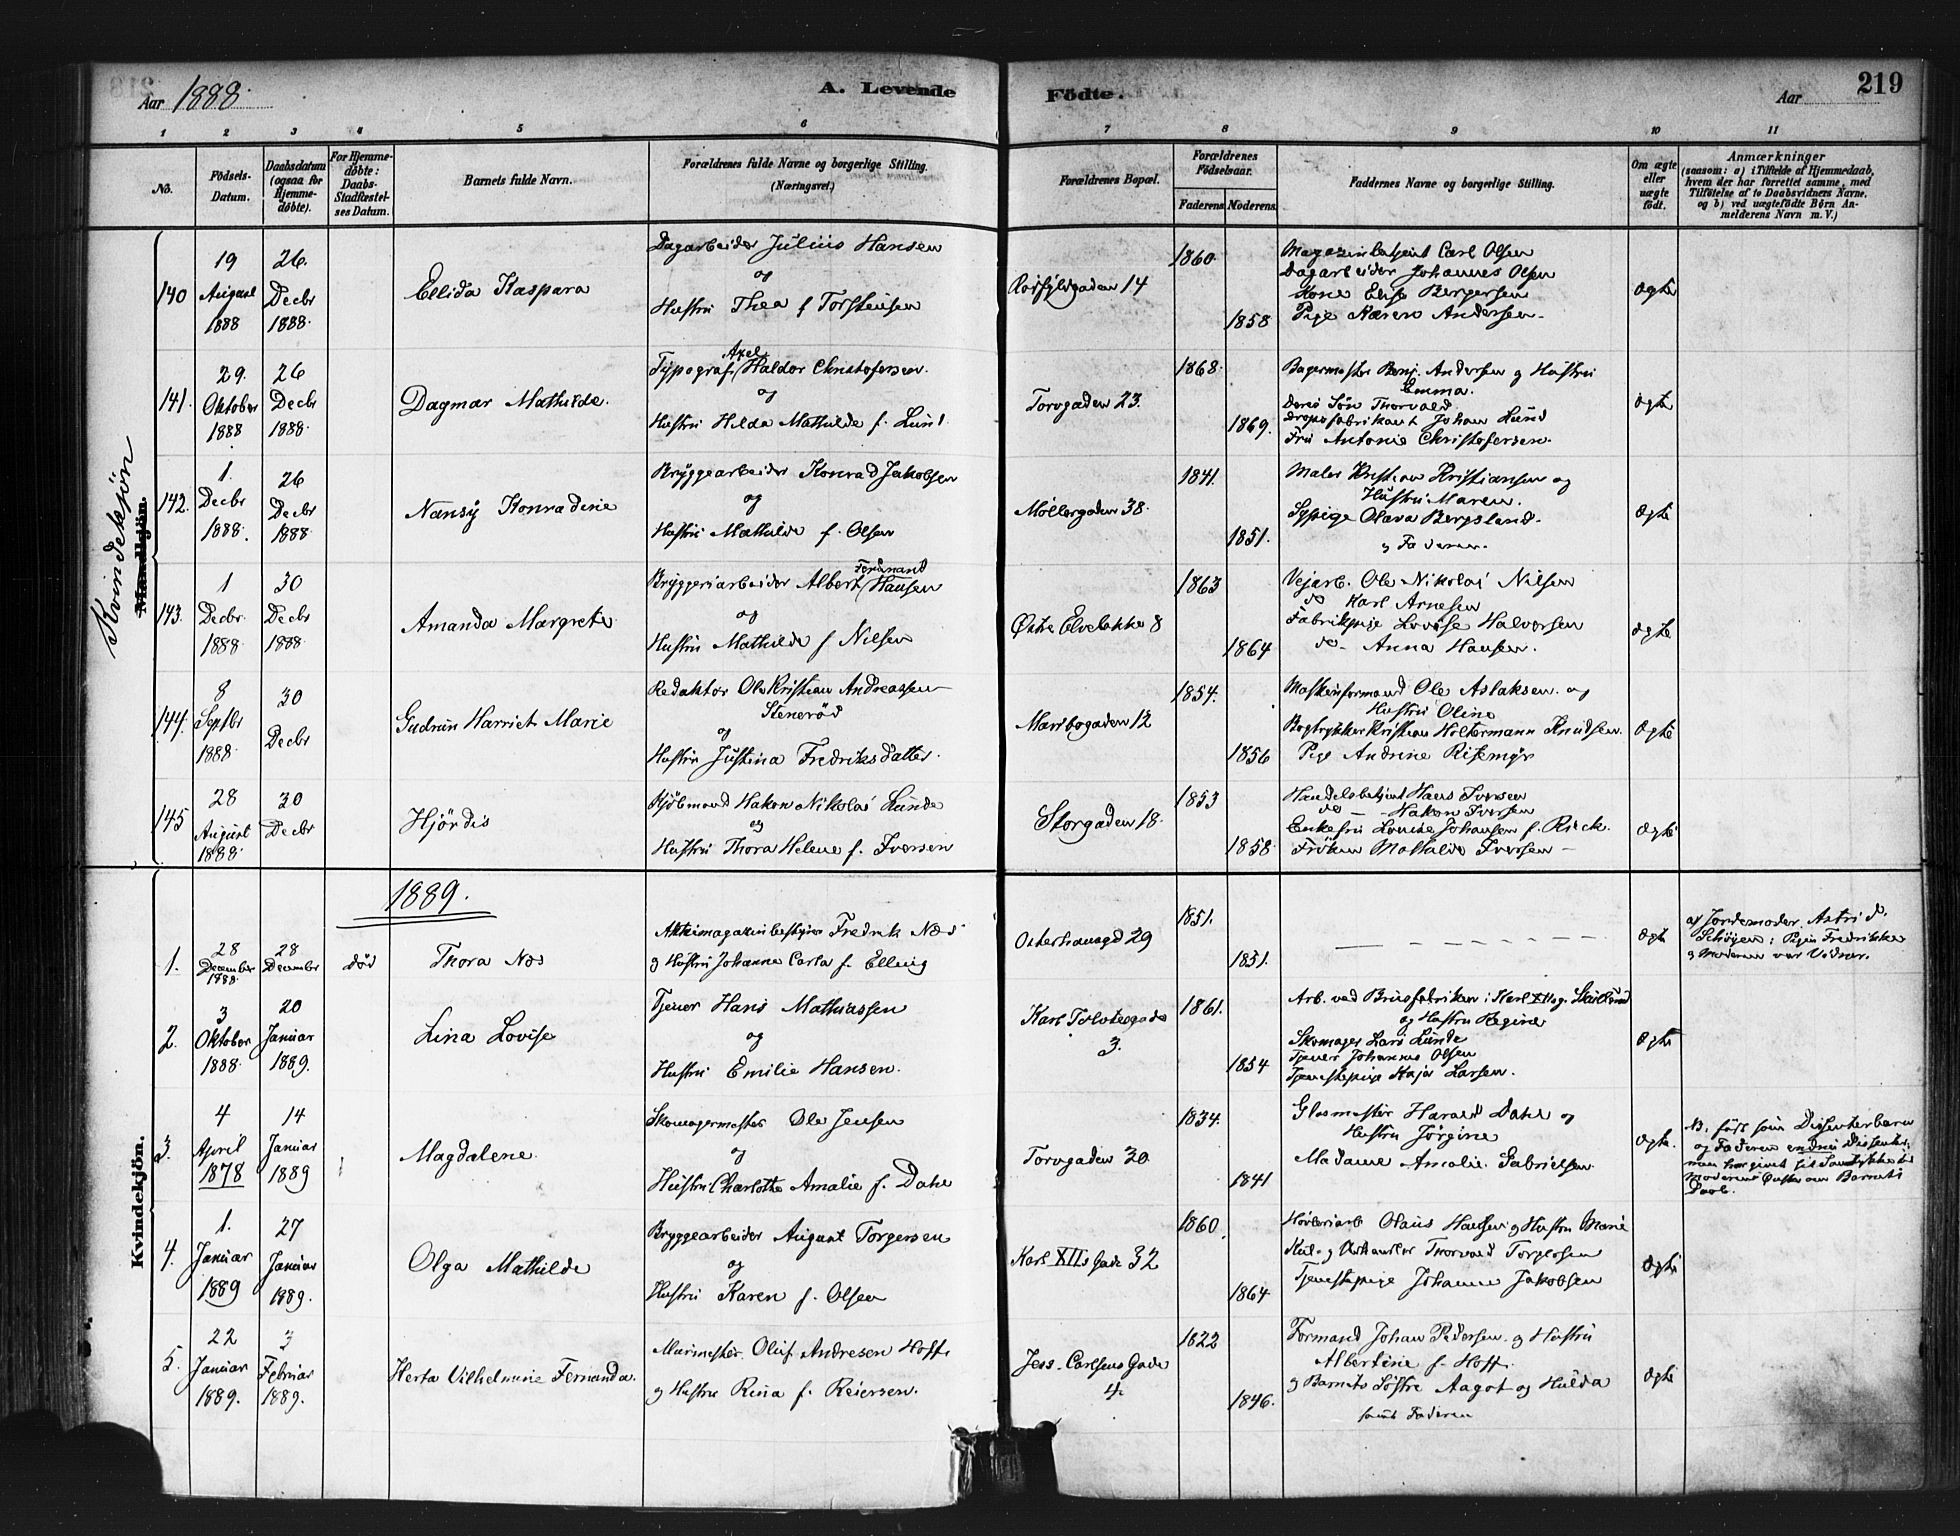 Aar 1888.
A. Levende
Födte.
Aar
219
1 2 3 4 5 6 7 8 9 10 11
No.
Födsels-Datum.
Daabsdatum (ogsaa for Hjemme-døbte).
For Hjemme-døbte: Daabs-Stadfæstel-ses Datum.
Barnets fulde Navn.
Forældrenes fulde Navne og borgerlige Stilling. (Næringsvei.)
Forældrenes Bopæl.
Forældrenes Födselsaar.
Faderens.
Moderens.
Faddernes Navne og borgerlige Stilling.
Om ægte eller uægte födt.
Anmærkninger
(saasom: a) i Tilfælde af Hjemmedaab,
hvem der har forrettet samme, med
Tilföielse af to Daabsvidners Navne,
og b) ved uægtefödte Börn An-
melderens Navn m. V.)
Kvindekjön
Mandkjön.
140
19 August 1888
26. Decbr 1888.
Ellida Kaspara
Dagarbeider Julius Hansen
og
Hustru Thea f Torstensen
14
1860
1858
Magazinbetjent Carl Olsen
Dagarbeider Johannes Olsen
Kone Elise Bergersen
Pige Karen Andersen
Ægte
141.
29. Oktober 1888
26 Decbr 1888.
Dagmar Mathilde.
Axel
Typograf Haldor Christofersen.
og
Hustru Hilda Mathilde f. Lund.
Torvgaden 23.
1868.
1869.
Bagermester Benj. Andersen og Hustru
Emma.
Deres Søn Thorvald.
Johan Lund
Fru Antonie Christofersen.
Ægte
142.
1. Decbr 1888.
26 Decbr 1888
Nansy Konradine
Bryggearbeider Konrad Jakobsen
og
Hustru Mathilde f. Olsen
Møllergaden 38.
1841.
1851.
Maler Kristian Kristiansen og
Hustru Maren.
Sypige Olava Bergsland.
og Faderen.
Ægte
143.
1 Decbr. 1888
30 Decbr 1888.
Amanda Margrete
Ferdinand
Bryggeriarbeider Albert Hansen
og
Hustru Mathilde f Nilsen
Østre Elvebakke 8
1863
1864
Vejarb. Ole Nikolai Nilsen
do Karl Arnesen
Fabrikpige Lovise Halvorsen
do- Anna Hansen.
Ægte
144.
8 Septbr 1888.
30 Decbr
Gudrun Harriet Marie
Redaktør Ole Kristian Andreassen
Stenerød
og
Hustru Justina Fredriksdatter.
Maribogaden 12
1854.
1856
Maskinformand Ole Aslaksen. og
Hustru Oline
Bogtrykker Kristian Holtermann Knudsen.
Pige Andrine Risemyr
Ægte
145
28 August 1888.
30 Decbr
Hjördis
Kjøbmand Hakon Nikolai Lunde
og
Hustru Thora Helene f. Iversen
Storgaden 18.
1853
1858.
Handelsbetjent Hans Iversen
do — Hakon Iversen
Enkefru Lovise Johansen f. Rieck.
Frøken Mathilde Iversen —
Ægte
1889.
Kvindekjön.
1.
28 December 1888.
28 December
død
Thora Næs
Fredrik Næs
og Hustru Johanne Carla f. Elling
Osterhausgd 29
1851.
1851.
Ægte
af Jordemoder Astrid
Schøyen; Pigen Fredrikke
og Moderen var Vidner.
2.
3 Oktober 1888.
20 Januar 1889.
Lina Lovise
Tjener Hans Mathiassen
og
Hustru Emilie Hansen.
Karl Tolvtesgade
3.
1861.
1854
Arb. ved Brusfabriken i Karl XIIsg.
og Hustru Regine
Skomager Lars Lunde
Tjener Johannes Olsen
Tjenestepige Kaja Larsen.
Ægte
3.
4 April 1878
14 Januar 1889
Magdalene.
Skomagermester Ole Jensen
og
Hustru Charlotte Amalie f. Dahl
Torvgaden 30.
1834.
1841
Glasmester Harald Dahl og
Hustru Jørgine
Madame Amalie Gabrielsen
Ægte.
NB. født som Dissenterbarn
og Faderen endnu Dissenter;
men har givet sit Samtykke til
Moderens Ønske om Barnets
Daab.
4.
1. Januar 1889
27 Januar 1889.
Olga Mathilde
Bryggearbeider August Torgersen
og
Hustru Karen f. Olsen
Karl XIIs Gade 32
1860.
1864
Høvleriarb Olaus Hansen og Hustru Marie
Kul- og Vedhandler Thorvald Torgersen
Tjenestepige Johanne Jakobsen
Ægte
5.
22 Januar 1889.
3 Februar 1889.
Herta Vilhelmine Fernanda.
Murmester Oluf Andresen Hoff
og Hustru Rina f. Reiersen.
Jess. Carlsens Gade
4
1822
1846.
Formand Johan Pedersen og Hustru
Albertine f. Hoff.
og Barnets Søstre Aagot og Hulda
samt Faderen
Ægte